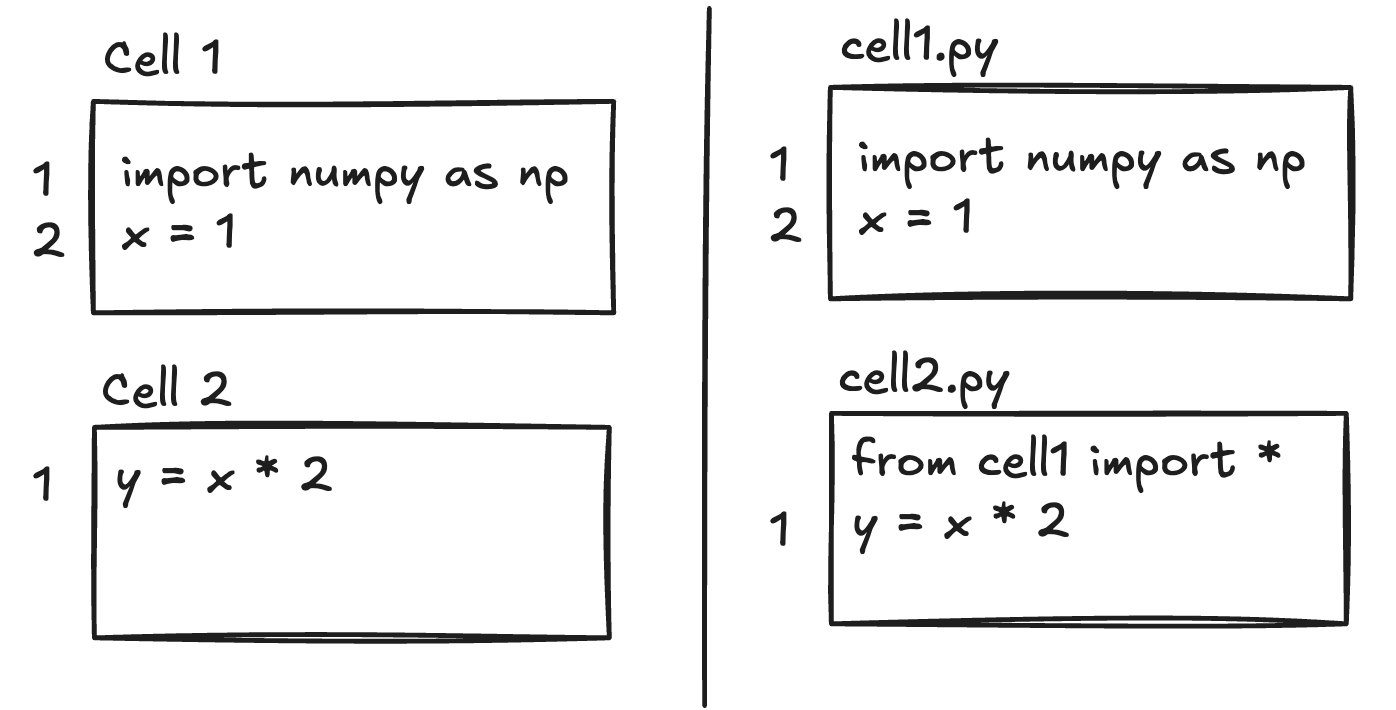 Cell 1
1 import numpy as np
2 x = 1
Cell 2
1 y = x * 2
cell1.py
1 import numpy as np
2 x = 1
cell2.py
from cell1 import *
1 y = x * 2